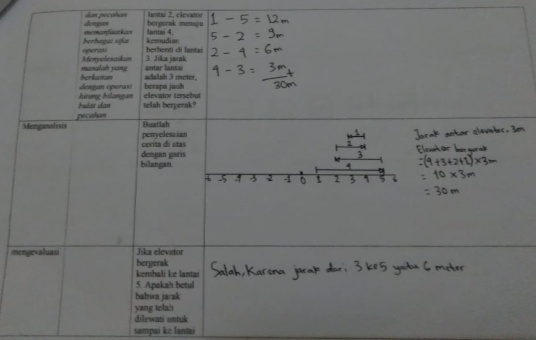 dan pecahan
dengan
memanfaatkan
berbagai sifat
operasi
Menyelesaikan
masalah yang
berkaitan
dengan operasi
hitung bilangan
bulat dan
pecahan
lantai 2, elevator
bergerak menuju
lantai 4,
kemudian
berhenti di lantai
3. Jika jarak
antar lantai
adalah 3 meter,
berapa jauh
elevator tersebut
telah bergerak?
1 - 5 = 12m
5 - 2 = 9m
2 - 4 = 6m
4 - 3 = 3m +
30m
Menganalisis
Buatlah
penyelesaian
cerita di atas
dengan garis
bilangan
1
2
3
4
-5 -4 -3 -2 -1 0 1 2 3 4 5 6
Jarak antar elevator. 3m
Elevator bergerak
=(4+3+2+1)×3m
= 10 × 3m
= 30 m
mengevaluasi
Jika elevator
bergerak
kembali ke lantai
5. Apakah betul
bahwa jarak
yang telah
dilewati untuk
sampai ke lantai
Salah, Karena jarak dari 3 ke 5 yaitu 6 meter